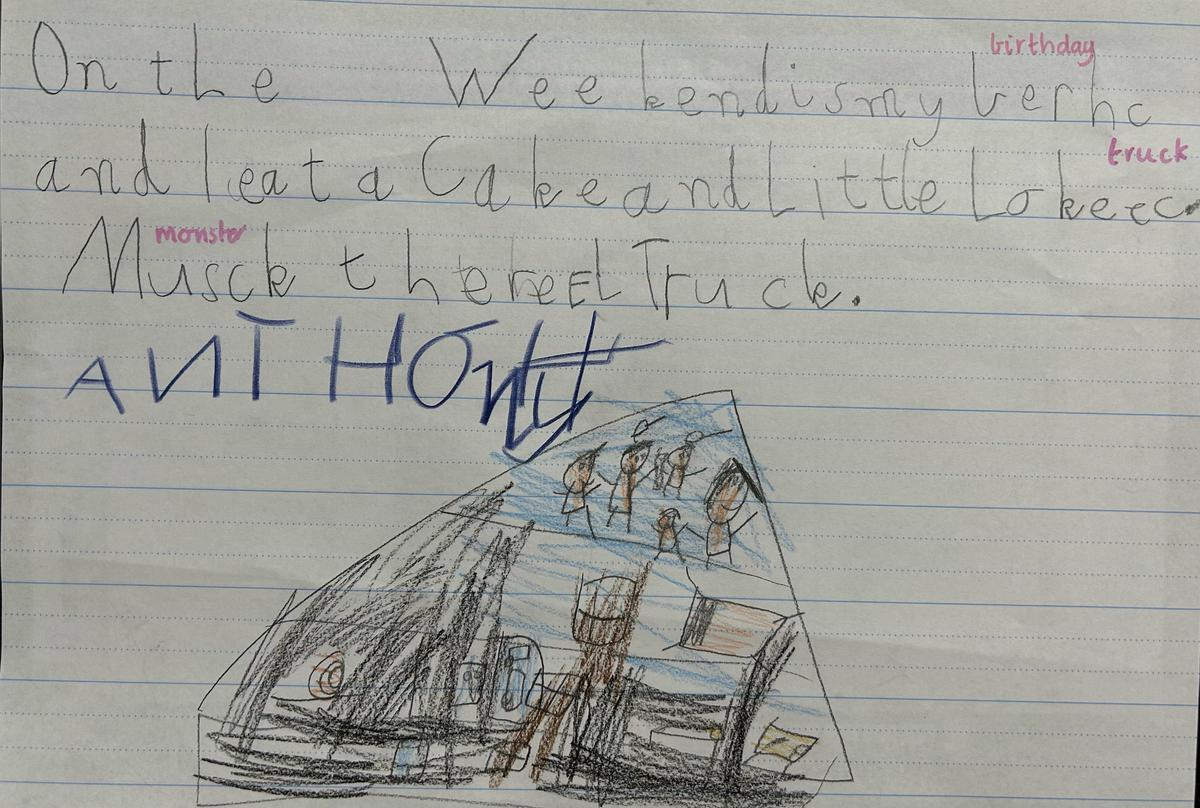 birthday
On the Weekend is my berhc
truck
and I eat a Cake and Little Lokeec.
monster
Musck the reel Truck.
ANTHONY